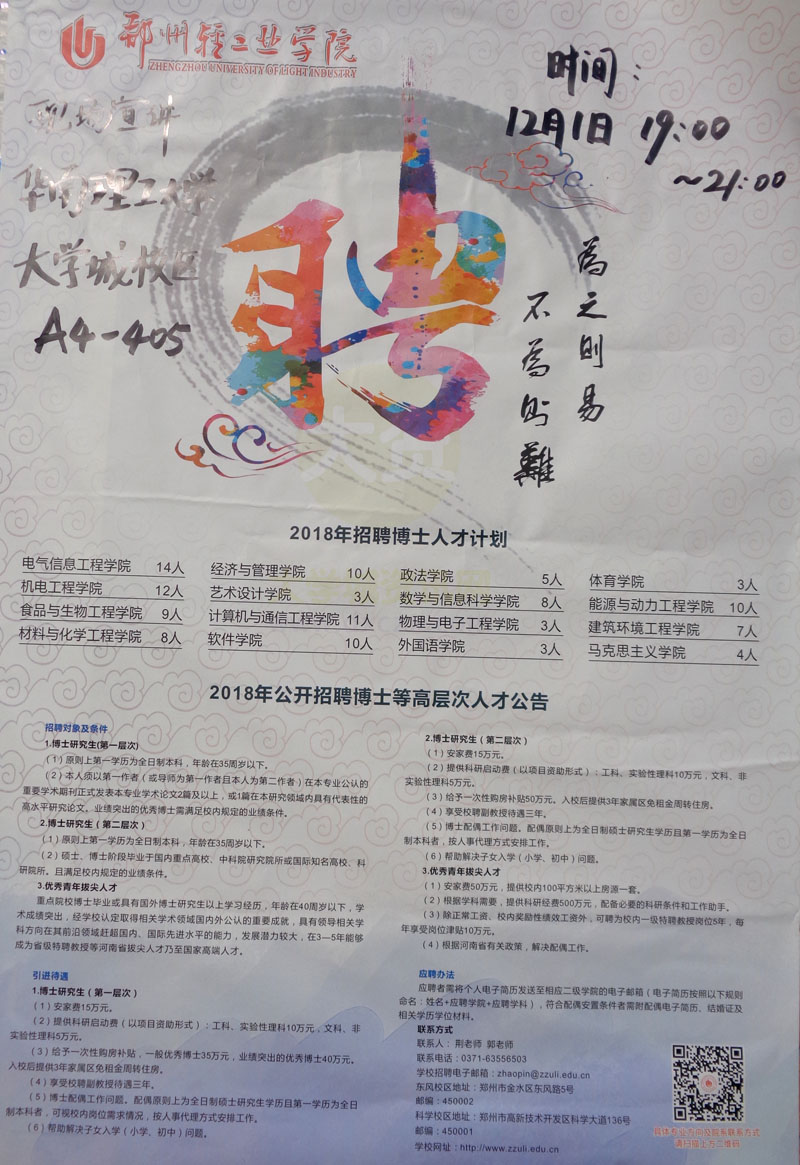 郑州轻工业学院
ZHENGZHOU UNIVERSITY OF LIGHT INDUSTRY
现场宣讲
华南理工大学
大学城校区
A4-405
时间：
12月1日 19:00
~21:00
聘
為之則易
不為則難
2018年招聘博士人才计划
电气信息工程学院 14人
机电工程学院 12人
食品与生物工程学院 9人
材料与化学工程学院 8人
经济与管理学院 10人
艺术设计学院 3人
计算机与通信工程学院 11人
软件学院 10人
政法学院 5人
数学与信息科学学院 8人
物理与电子工程学院 3人
外国语学院 3人
体育学院 3人
能源与动力工程学院 10人
建筑环境工程学院 7人
马克思主义学院 4人
2018年公开招聘博士等高层次人才公告
招聘对象及条件
1.博士研究生(第一层次)
（1）原则上第一学历为全日制本科，年龄在35周岁以下。
（2）本人须以第一作者（或导师为第一作者且本人为第二作者）在本专业公认的
重要学术期刊正式发表本专业学术论文2篇及以上，或1篇在本研究领域内具有代表性的
高水平研究论文。业绩突出的优秀博士需满足校内规定的业绩条件。
2.博士研究生（第二层次）
（1）原则上第一学历为全日制本科，年龄在35周岁以下。
（2）硕士、博士阶段毕业于国内重点高校、中科院研究院所或国际知名高校、科
研院所。且满足校内规定的业绩条件。
3.优秀青年拔尖人才
重点院校博士毕业或具有国外博士研究生以上学习经历，年龄在40周岁以下，学
术成绩突出，经学校认定取得相关学术领域国内外公认的重要成就，具有领导相关学
科方向在其前沿领域赶超国内、国际先进水平的能力，发展潜力较大，在3—5年能够
成为省级特聘教授等河南省拔尖人才乃至国家高端人才。
引进待遇
1.博士研究生（第一层次）
（1）安家费15万元。
（2）提供科研启动费（以项目资助形式）：工科、实验性理科10万元，文科、非
实验性理科5万元。
（3）给予一次性购房补贴，一般优秀博士35万元，业绩突出的优秀博士40万元。
入校后提供3年家属区免租金周转住房。
（4）享受校聘副教授待遇三年。
（5）博士配偶工作问题。配偶原则上为全日制硕士研究生学历且第一学历为全日
制本科者，可视校内岗位需求情况，按人事代理方式安排工作。
（6）帮助解决子女入学（小学、初中）问题。
2.博士研究生（第二层次）
（1）安家费15万元。
（2）提供科研启动费（以项目资助形式）：工科、实验性理科10万元，文科、非
实验性理科5万元。
（3）给予一次性购房补贴50万元。入校后提供3年家属区免租金周转住房。
（4）享受校聘副教授待遇三年。
（5）博士配偶工作问题。配偶原则上为全日制硕士研究生学历且第一学历为全日
制本科者，按人事代理方式安排工作。
（6）帮助解决子女入学（小学、初中）问题。
3.优秀青年拔尖人才
（1）安家费50万元，提供校内100平方米以上房源一套。
（2）根据学科需要，提供科研经费500万元，配备必要的科研条件和工作助手。
（3）除正常工资、校内奖励性绩效工资外，可聘为校内一级特聘教授岗位5年，每
年享受岗位津贴10万元。
（4）根据河南省有关政策，解决配偶工作。
应聘办法
应聘者需将个人电子简历发送至相应二级学院的电子邮箱（电子简历按照以下规则
命名：姓名+应聘学院+应聘学科），符合配偶安置条件者需附配偶电子简历、结婚证及
相关学历学位材料。
联系方式
联系人： 荆老师 郭老师
联系电话：0371-63556503
学校招聘电子邮箱：zhaopin@zzuli.edu.cn
东风校区地址：郑州市金水区东风路5号
邮编：450002
科学校区地址：郑州市高新技术开发区科学大道136号
邮编：450001
学校网址：http://www.zzuli.edu.cn
具体专业方向及院系联系方式
请扫描上方二维码